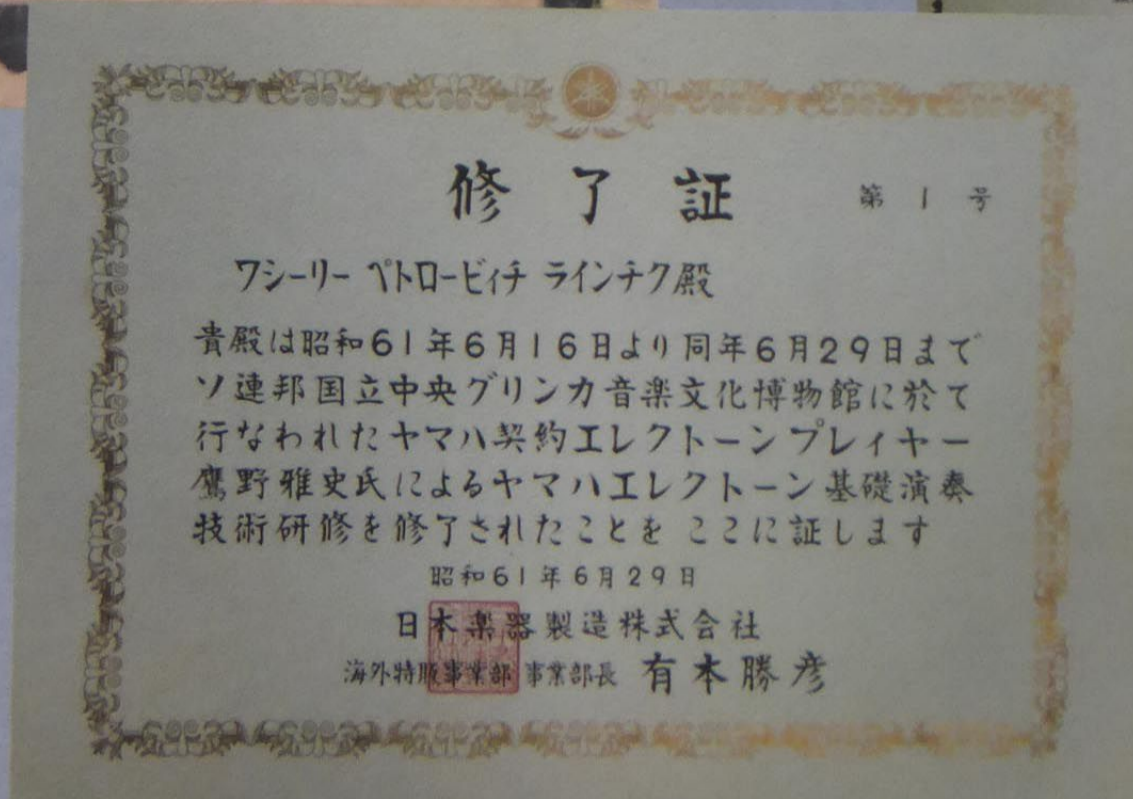 修了証
第1号
ワシーリー ペトロービィチ ラインチク殿
貴殿は昭和61年6月16日より同年6月29日まで
ソ連邦国立中央グリンカ音楽文化博物館に於て
行なわれたヤマハ契約エレクトーンプレイヤー
鷹野雅史氏によるヤマハエレクトーン基礎演奏
技術研修を修了されたことを ここに証します
昭和61年6月29日
日本楽器製造株式会社
海外特販事業部 事業部長 有本勝彦